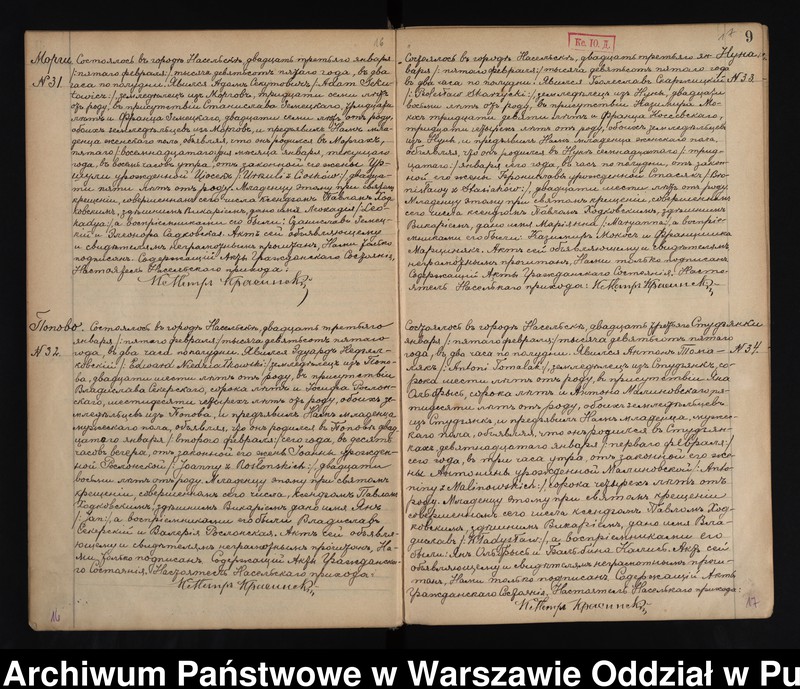 16
Морги
№ 31.
Состоялось въ городѣ Насельскѣ, двадцать третьяго января
/: пятаго февраля:/ тысяча девятьсотъ пятаго года, въ два
часа по полудни. Явился Адамъ Секутовичъ /: Adam Seku-
towicz :/ земледѣлецъ изъ Морговъ, тридцати осьми лѣтъ
отъ роду, въ присутствіи Станислава Гемецкаго,
лѣтъ и Франца Гемецкаго, двадцати семи лѣтъ отъ роду,
обоихъ земледѣльцевъ изъ Морговъ, и предъявилъ Намъ мла-
денца женскаго пола, объявляя, что онъ родился въ Моргахъ,
пятаго /: восемнадцатаго:/ дня мѣсяца января, текущаго
года, въ восемь часовъ утра, отъ законной его жены Ур-
шули урожденной Цосекъ /: Urszuli z Cosków :/ двадца-
ти пяти лѣтъ отъ роду. Младенцу этому при святомъ
крещеніи, совершенномъ сего числа Ксендзомъ Павломъ Ход-
ковскимъ, здѣшнимъ Викаріемъ, дано имя Леокадія /: Leo-
kadya:/, а воспріемниками его были: Станиславъ Гемец-
кій и Элеонора Садковская. Актъ сей объявляющему
и свидѣтелямъ неграмотнымъ прочитанъ, Нами только
подписанъ. Содержащій Акты Гражданскаго Состоянія,
Настоятель Насельскаго прихода:
Кс Петръ Красинскій
Попово.
№ 32.
Состоялось въ городѣ Насельскѣ, двадцать третьяго
января /: пятаго февраля:/ тысяча девятьсотъ пятаго
года, въ два часа пополудни. Явился Эдуардъ Недзял-
ковскій /: Edward Niedziałkowski:/ земледѣлецъ изъ Попо-
ва, двадцати шести лѣтъ отъ роду, въ присутствіи
Владислава Сенерскаго, сорока лѣтъ и Іосифа Рослон-
скаго, шестидесяти четырехъ лѣтъ отъ роду, обоихъ зе-
мледѣльцевъ изъ Попова, и предъявилъ Намъ младенца
мужескаго пола, объявляя, что онъ родился въ Поповѣ двад-
цатаго января /: второго февраля:/ сего года, въ десять
часовъ вечера, отъ законной его жены Іоанны урожден-
ной Рослонской /: Joanny z Rosłonskich:/, двадцати
восьми лѣтъ отъ роду. Младенцу этому при святомъ
крещеніи, совершенномъ сего числа, Ксендзомъ Павломъ
Ходковскимъ, здѣшнимъ Викаріемъ дано имя Янъ
/: Jan:/, а воспріемниками его были Владиславъ
Сенерскій и Валерія Рослонская. Актъ сей объявля-
ющему и свидѣтелямъ неграмотнымъ прочитанъ, На-
ми только подписанъ. Содержащій Акты Гражданска-
го Состоянія. Настоятель Насельскаго прихода:
Кс Петръ Красинскій
16
17
9
Кс. Ю. Д.
Нуна
№ 33.
Состоялось въ городѣ Насельскѣ, двадцать третьяго ян-
варя /: пятаго февраля:/ тысяча девятьсотъ пятаго года
въ два часа по полудни. Явился Болеславъ Скаржицкій
/: Bolesław Skarzycki:/ земледѣлецъ изъ Нуны, двадцати
восьми лѣтъ отъ роду, въ присутствіи Казимира Мо-
кос тридцати девяти лѣтъ и Франца Косевскаго,
тридцати четырехъ лѣтъ отъ роду, обоихъ земледѣльцевъ
изъ Нуны, и предъявилъ Намъ младенца женскаго пола,
объявляя, что онъ родился въ Нунѣ семнадцатаго /: трид-
цатаго:/ января сего года, въ часъ по полудни, отъ закон-
ной его жены Брониславы урожденной Стасякъ /: Bro-
nisławy z Stasiaków:/, двадцати шести лѣтъ отъ роду.
Младенцу этому при святомъ крещеніи, совершенномъ
сего числа ксендзомъ Павломъ Ходковскимъ, здѣшнимъ
Викаріемъ, дано имя Маріанна /: Maryanna:/, а воспріе-
мниками его были: Казимиръ Мокос и Францишка
Марцинякъ. Актъ сей объявляющему и свидѣтелямъ
неграмотнымъ прочитанъ, Нами только подписанъ.
Содержащій Акты Гражданскаго Состоянія. Насто-
ятель Насельскаго прихода: Кс Петръ Красинскій
Студзянки
№ 34.
Состоялось въ городѣ Насельскѣ, двадцать третьяго
января /: пятаго февраля:/ тысяча девятьсотъ пятаго
года, въ два часа по полудни. Явился Антонъ Тома-
лякъ /: Antoni Tomalak:/, земледѣлецъ изъ Студзянк, со-
рока шести лѣтъ отъ роду, въ присутствіи Яна
Ольбрысь, сорока лѣтъ и Антона Малиновскаго пя-
тидесяти лѣтъ отъ роду, обоихъ земледѣльцевъ
изъ Студзянк, и предъявилъ Намъ младенца, муже-
скаго пола, объявляя, что онъ родился въ Студзян-
кахъ, девятнадцатаго января /: перваго февраля:/
сего года, въ три часа утра, отъ законной его же-
ны Антонины урожденной Малиновской /: Anto-
niny z Malinowskich:/ сорока четырехъ лѣтъ отъ
роду. Младенцу этому при святомъ крещеніи
совершенномъ сего числа ксендзомъ Павломъ Ход-
ковскимъ, здѣшнимъ Викаріемъ, дано имя Вла-
диславъ /: Władysław:/, а воспріемниками его
были: Янъ Ольбрысь и Бальбина Калисъ. Актъ сей
объявляющему и свидѣтелямъ неграмотнымъ прочи-
танъ, Нами только подписанъ. Содержащій Акты
Гражданскаго Состоянія. Настоятель Насельскаго прихода:
Кс Петръ Красинскій
17
Archiwum Państwowe w Warszawie Oddział w Pu